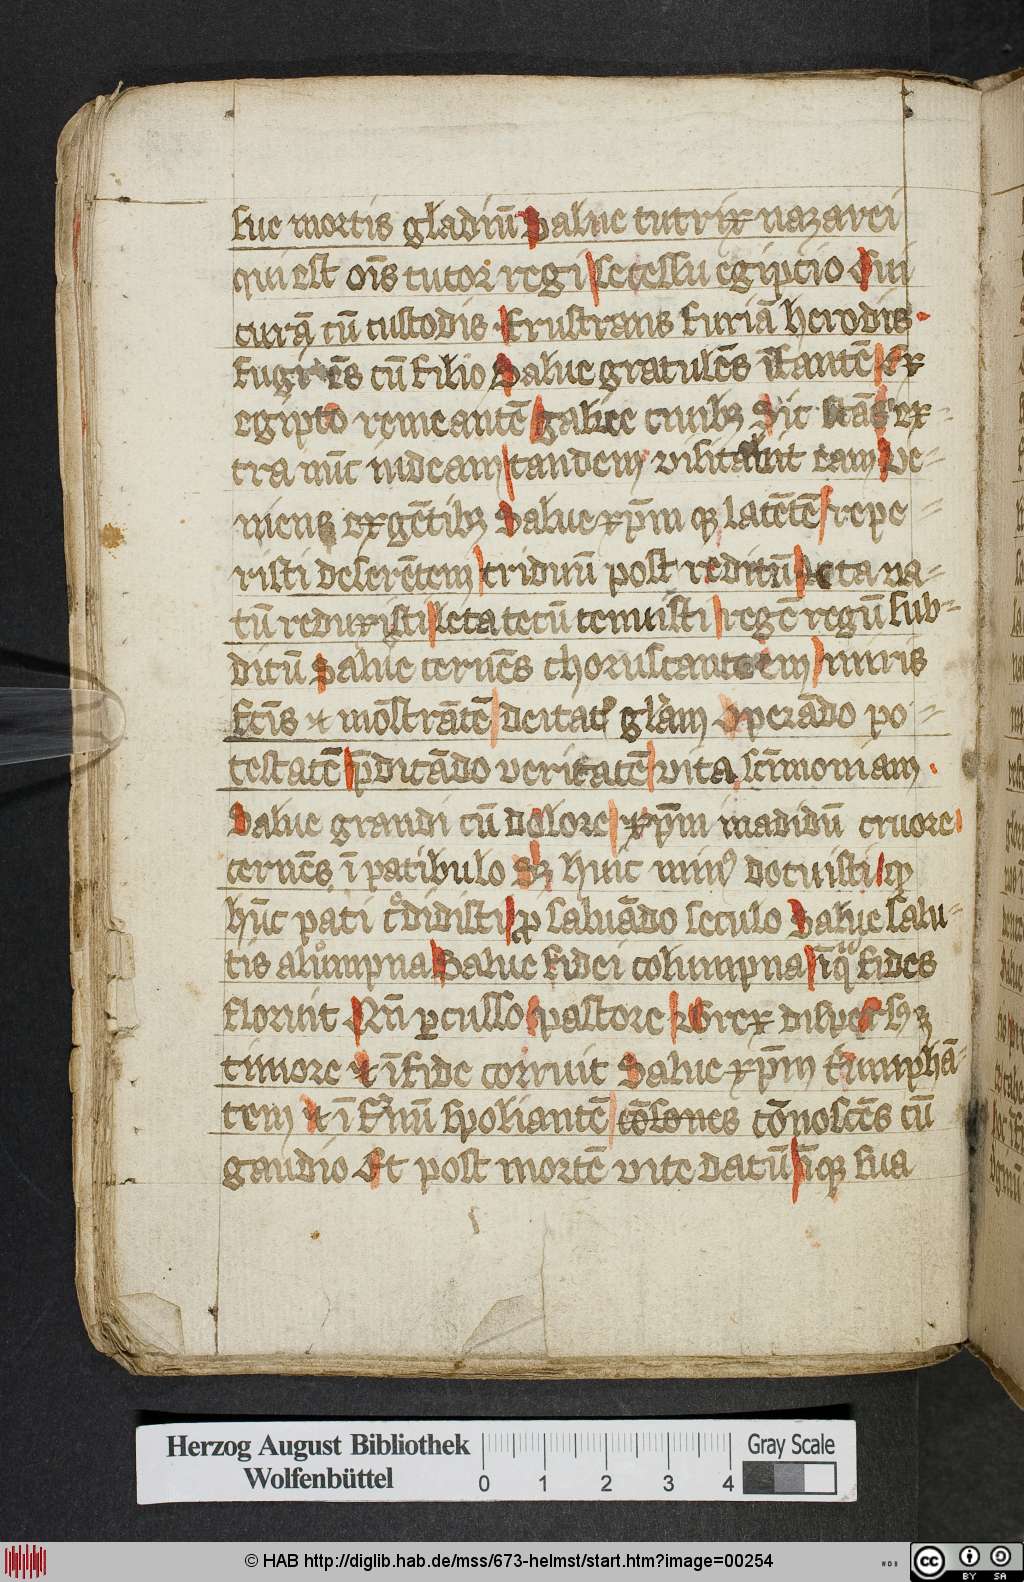 sue mortis gladiū Salue tutrix nazarei
qui est oīs tutor regi secessu egipcio Qui
curā cū custodis frustrans furiā herodis
fugiēs cū filio Salue gratulēs īfantē Ex
egipto remeantē galilee ciuibꝫ Sic ex-
tra nūc iudeam tandem visitauit eam Ve-
niens ex gētibꝫ Salue xp̄m latētē repe-
risti deferētem triduū post reditū Leta na-
tū reduxisti leta tecū tenuisti regē regū sub-
ditū Salue cernēs choruscantem miris
fcīs et mōstrātē deitatꝭ glām Operādo po-
testatē p̄dicādo veritatē vita scīmoniam
Salue grandi cū dolore xp̄m madidū cruore
cernēs ī patibulo Sꝫ huic minꝰ docuisti
hūc pati c̄didisti ꝓ saluādo seculo Salue salu-
tis alūmpna Salue fidei columpna ī q̄ fides
floruit Nā ꝑcusso pastore Grex dispersꝰ hꝫ
timore et ī fide corruit Salue xp̄m triumphā-
tem et ī fernū spoliantē cōsones cōnoscēs cū
gaudio Et post mortē vite datū sua
Herzog August Bibliothek
Wolfenbüttel
0 1 2 3 4
Gray Scale
© HAB http://diglib.hab.de/mss/673-helmst/start.htm?image=00254
cc BY SA